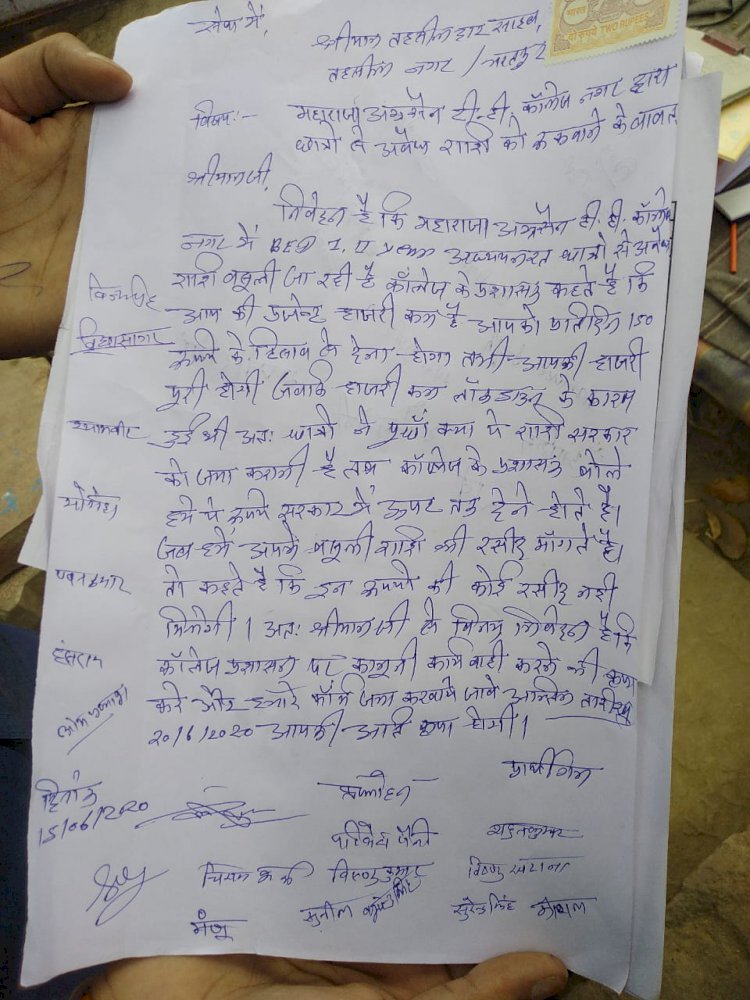 सेवा में,
श्रीमान तहसीलदार साहब,
तहसील नगर / भरतपुर
भारत
दो रुपये TWO RUPEES
विषय:- महाराजा अग्रसैन टी.टी. कॉलेज नगर द्वारा
छात्रो से अवैध राशि को रूकवाने के बावत
श्रीमानजी,
निवेदन है कि महाराजा अग्रसैन टी.टी. कॉलेज
नगर में BED I, II year अध्ययनरत छात्रो से अवैध
राशि वसूली जा रही है कॉलेज के प्रशासन कहते है कि
आप की हाजरी कम है आपको प्रतिदिन 150
रूपये के हिसाब से देना होगा तभी आपकी हाजरी
पूरी होगी जबकि हाजरी कम लॉकडाउन के कारण
हुई थी अतः छात्रो ने पूछाँ क्या ये राशि सरकार
को जमा करानी है तब कॉलेज के प्रशासन बोले
हमे ये रूपये सरकार में ऊपर तक देने होते है।
जब हम अपनी वसूली राशि की रसीद माँगते है।
तो कहते है कि इन रूपयो की कोई रसीद नही
मिलेगी। अतः श्रीमान जी से विनम्र निवेदन है कि
कॉलेज प्रशासन पर कानूनी कार्यवाही करने की कृपा
करे और हमारे फॉर्म जमा करवाये जावे अन्तिम तारीख
20/6/2020 आपकी अति कृपा होगी।
विद्यासागर
हंसराज
ओमप्रकाश
दिनांक
15/06/2020
प्रार्थीगण
विष्णु कुमार
मंजू
सुनील
सुरेन्द्र सिंह